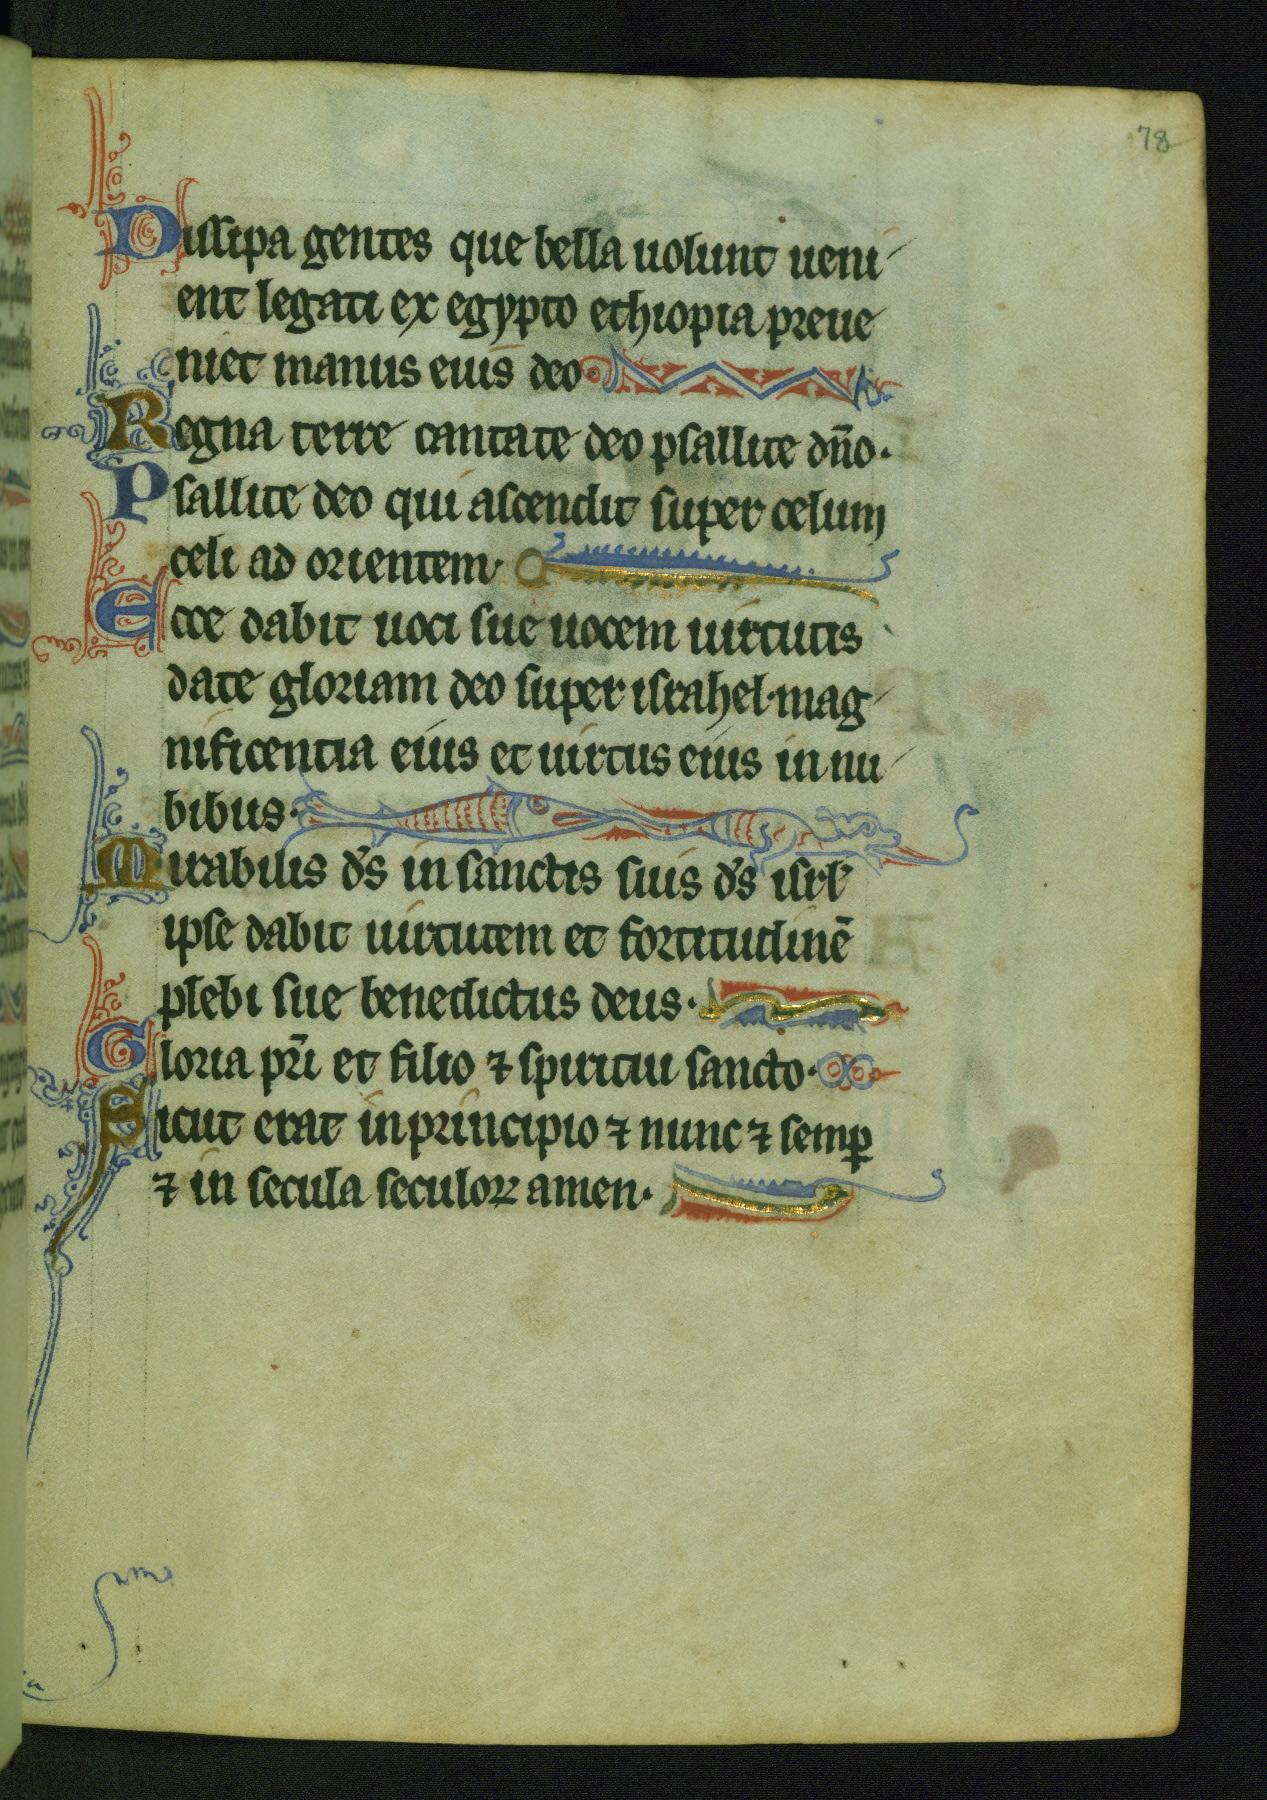 78
Dissipa gentes que bella uolunt ueni
ent legati ex egypto ethiopia preue
niet manus eius deo·
Regna terre cantate deo psallite dn̄o·
Psallite deo qui ascendit super celum
celi ad orientem·
Ecce dabit uoci sue uocem uirtutis
date gloriam deo super israhel·mag
nificentia eius et uirtus eius in nu
bibus·
Mirabilis d̄s in sanctis suis d̄s isrl̄
ipse dabit uirtutem et fortitudinē
plebi sue benedictus deus·
Gloria pr̄i et filio ⁊ spiritui sancto·
Sicut erat in principio ⁊ nunc ⁊ semꝑ
⁊ in secula seculoꝝ amen·